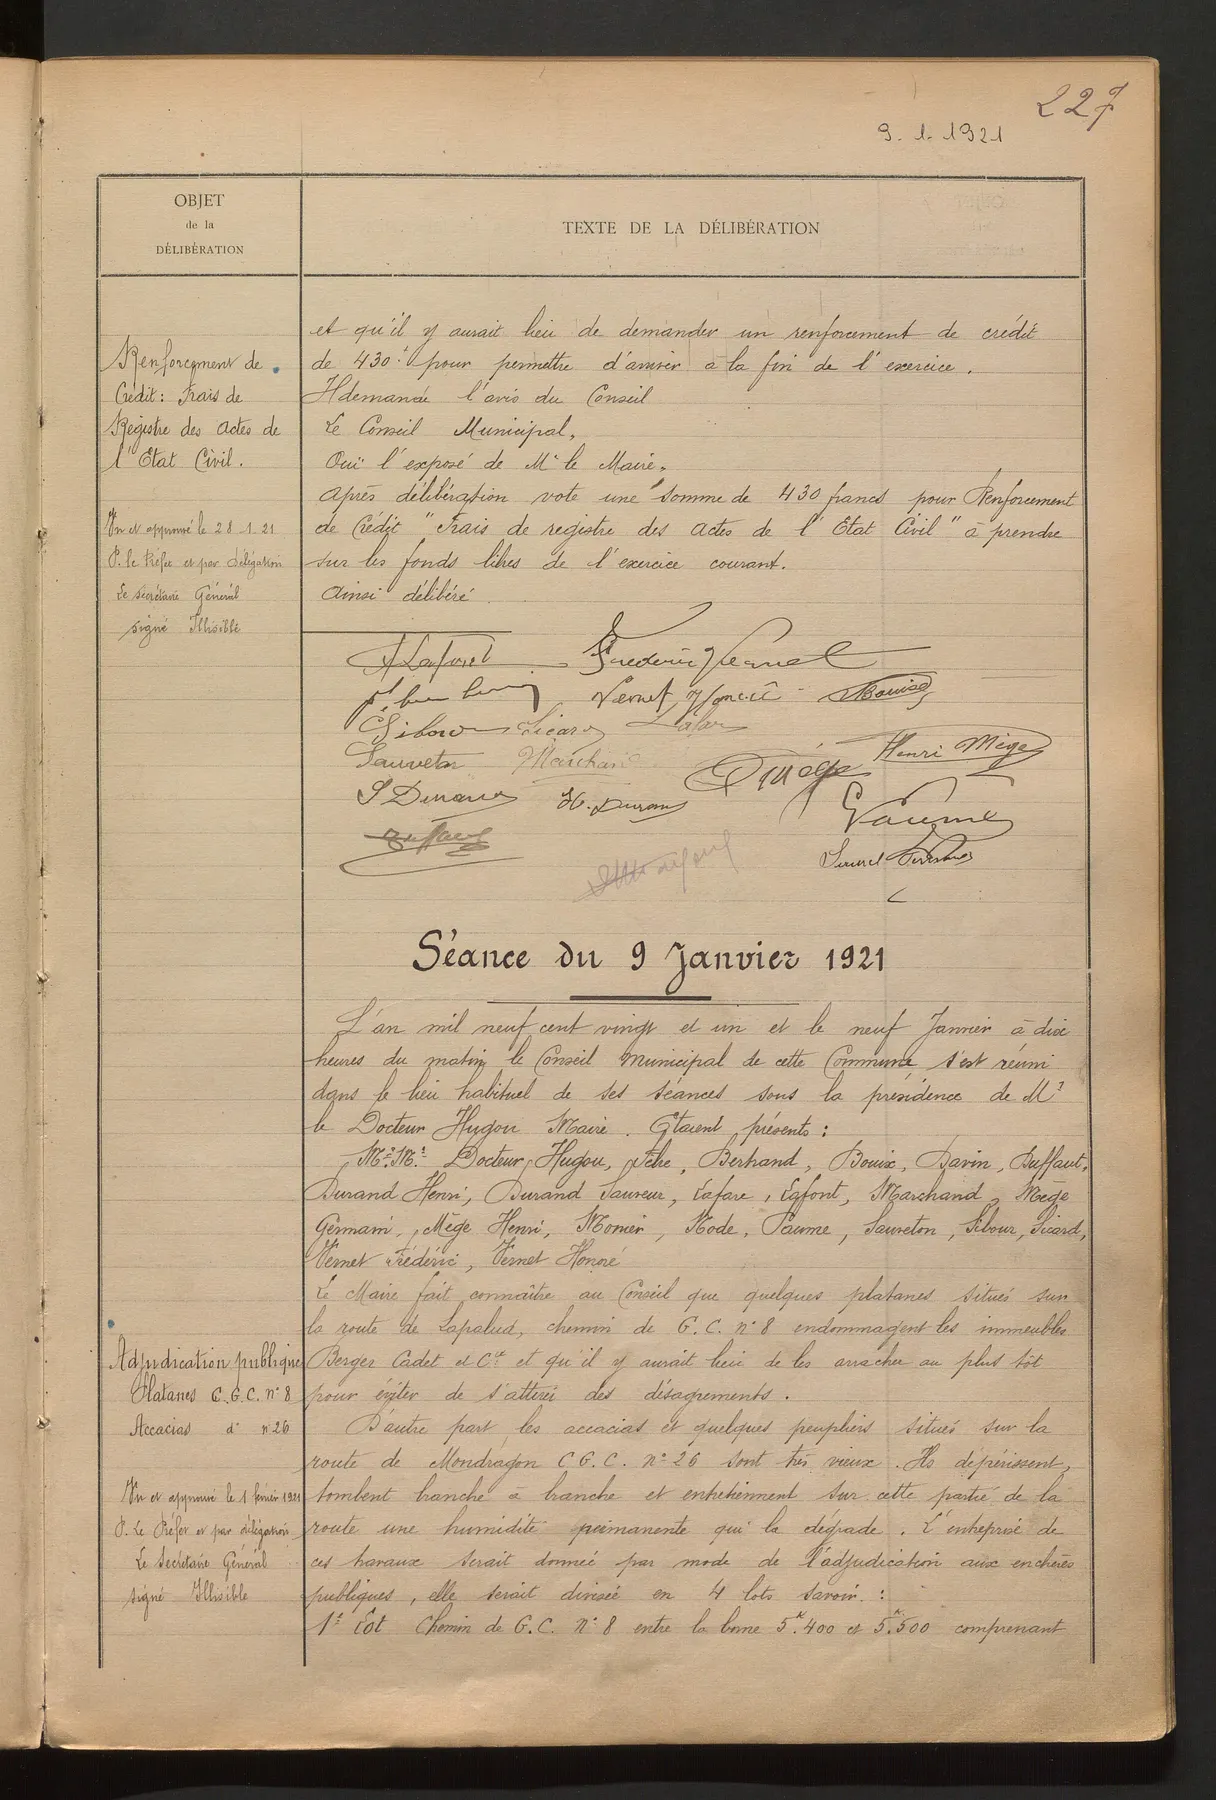 227
9. 1. 1921
OBJET
de la
DÉLIBÉRATION
TEXTE DE LA DÉLIBÉRATION
Renforcement de
Crédit : Frais de
Registre des Actes de
l'Etat Civil.
Vu et approuvé le 28.1.21
P. le Préfet et par délégation
Le secrétaire Général
signé Illisible
et qu'il y aurait lieu de demander un renforcement de crédit
de 430.f pour permettre d'arriver à la fin de l'exercice.
Il demande l'avis du Conseil
Le Conseil Municipal,
Ouï l'exposé de Mr le Maire,
Après délibération vote une somme de 430 francs pour Renforcement
de Crédit "Frais de registre des Actes de l'Etat Civil" à prendre
sur les fonds libres de l'exercice courant.
Ainsi délibéré
Frédéric Vernet
Vernet Honoré
Sibour Sicard Lafare
Sauveton Marchand
Henri Mège
S Durand H. Durand
Séance du 9 Janvier 1921
L'an mil neuf cent vingt et un et le neuf Janvier à dix
heures du matin le Conseil Municipal de cette Commune s'est réuni
dans le lieu habituel de ses séances sous la présidence de Mr
le Docteur Hugou Maire. Etaient présents :
Mrs M.rs Docteur Hugou, Bertrand, Bouix, Davin, Buffaut,
Durand Henri, Durand Sauveur, Lafare, Lafont, Marchand, Mège
Germain, Mège Henri, Monier, Rode, Paume, Sauveton, Sibour, Sicard,
Vernet Frédéric, Vernet Honoré
Le Maire fait connaître au Conseil que quelques platanes situés sur
la route de Lapalud, chemin de G.C. n° 8 endommagent les immeubles
Berger Cadet et Cie et qu'il y aurait lieu de les arracher au plus tôt
pour éviter de s'attirer des désagrements.
D'autre part les accacias et quelques peupliers situés sur la
route de Mondragon C.G.C. n° 26 sont très vieux. Ils dépérissent,
tombent branche à branche et entretiennent sur cette partie de la
route une humidité permanente qui la dégrade. L'entreprise de
ces travaux serait donnée par mode de l'adjudication aux enchères
publiques, elle serait divisée en 4 lots savoir :
1er Lot Chemin de G.C. N° 8 entre la borne 5k.400 et 5k.500 comprenant
Adjudication publique
Platanes C.G.C. n° 8
Accacias d° n° 26
Vu et approuvé le 1 février 1921
P. Le Préfet et par délégation
Le Secrétaire Général
signé Illisible